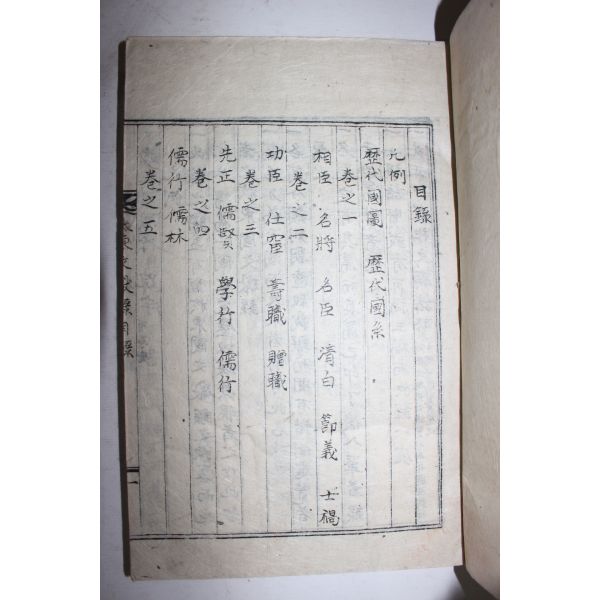 目錄
凡例
歷代國啚 歷代國系
卷之一
相臣 名將 名臣 淸白 節義 士禍
卷之二
功臣 仕宦 壽職 贈職
卷之三
先正 儒賢 學行 儒行
卷之四
儒行 儒林
卷之五
東文献錄目錄